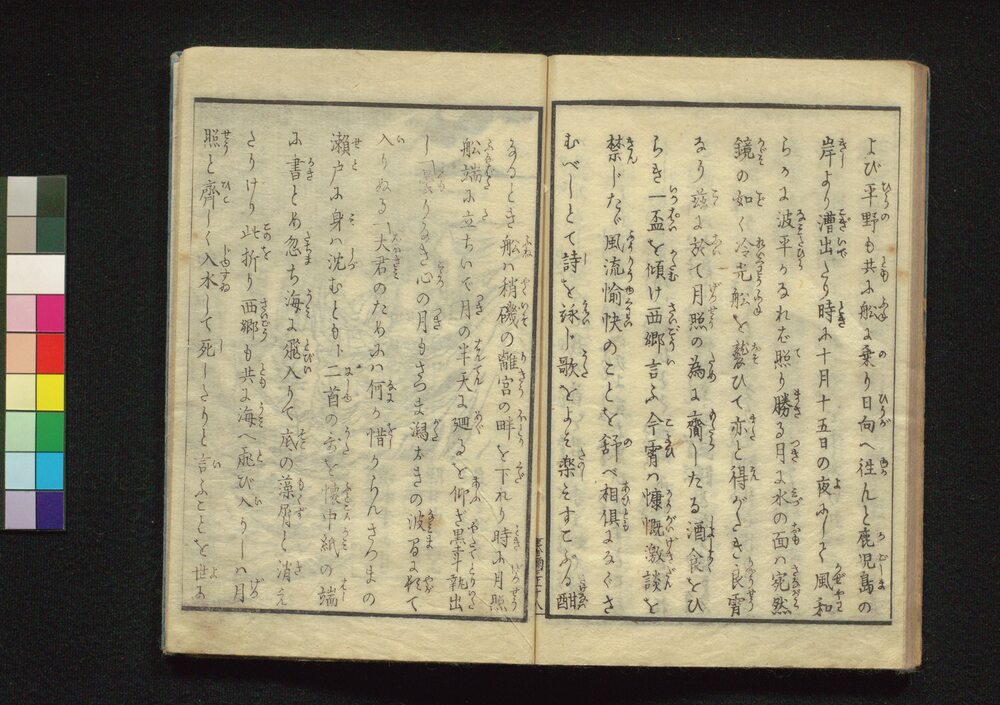 よび平野も共に船に乗り日向へ徃んと鹿児島の
岸より漕出たり時に十月十五日の夜にして風和
らかに波平かなれば照り勝る月に水の面は宛然
鏡の如く冷光船を襲ひて亦と得がたき良霄
なり茲に於て月照の為に齎したる酒食をひ
らき一盃を傾け西郷言ふ今霄は慷慨激談を
禁じたゞ風流愉快のことを舒べ相倶になぐさ
むべしとて詩を詠じ歌をよみ楽みすこぶる酣
なるとき船は梢磯の離宮の畔を下れり時に月照
船端に立ちいで月の半天に廻るを仰ぎ墨斗執出
し
曇りなき心の月もさつま潟おきの波間に
入りぬる
大君のためには何か惜からんさつまの
瀬戸に身は沈むとも
ト二首の哥を懐中紙の端
に書とめ忽ち海に飛入りて底の藻屑と消え
たりけり此折り西郷も共に海へ飛び入りしは月
照と齊しく入水して死したりと言ふことを世に